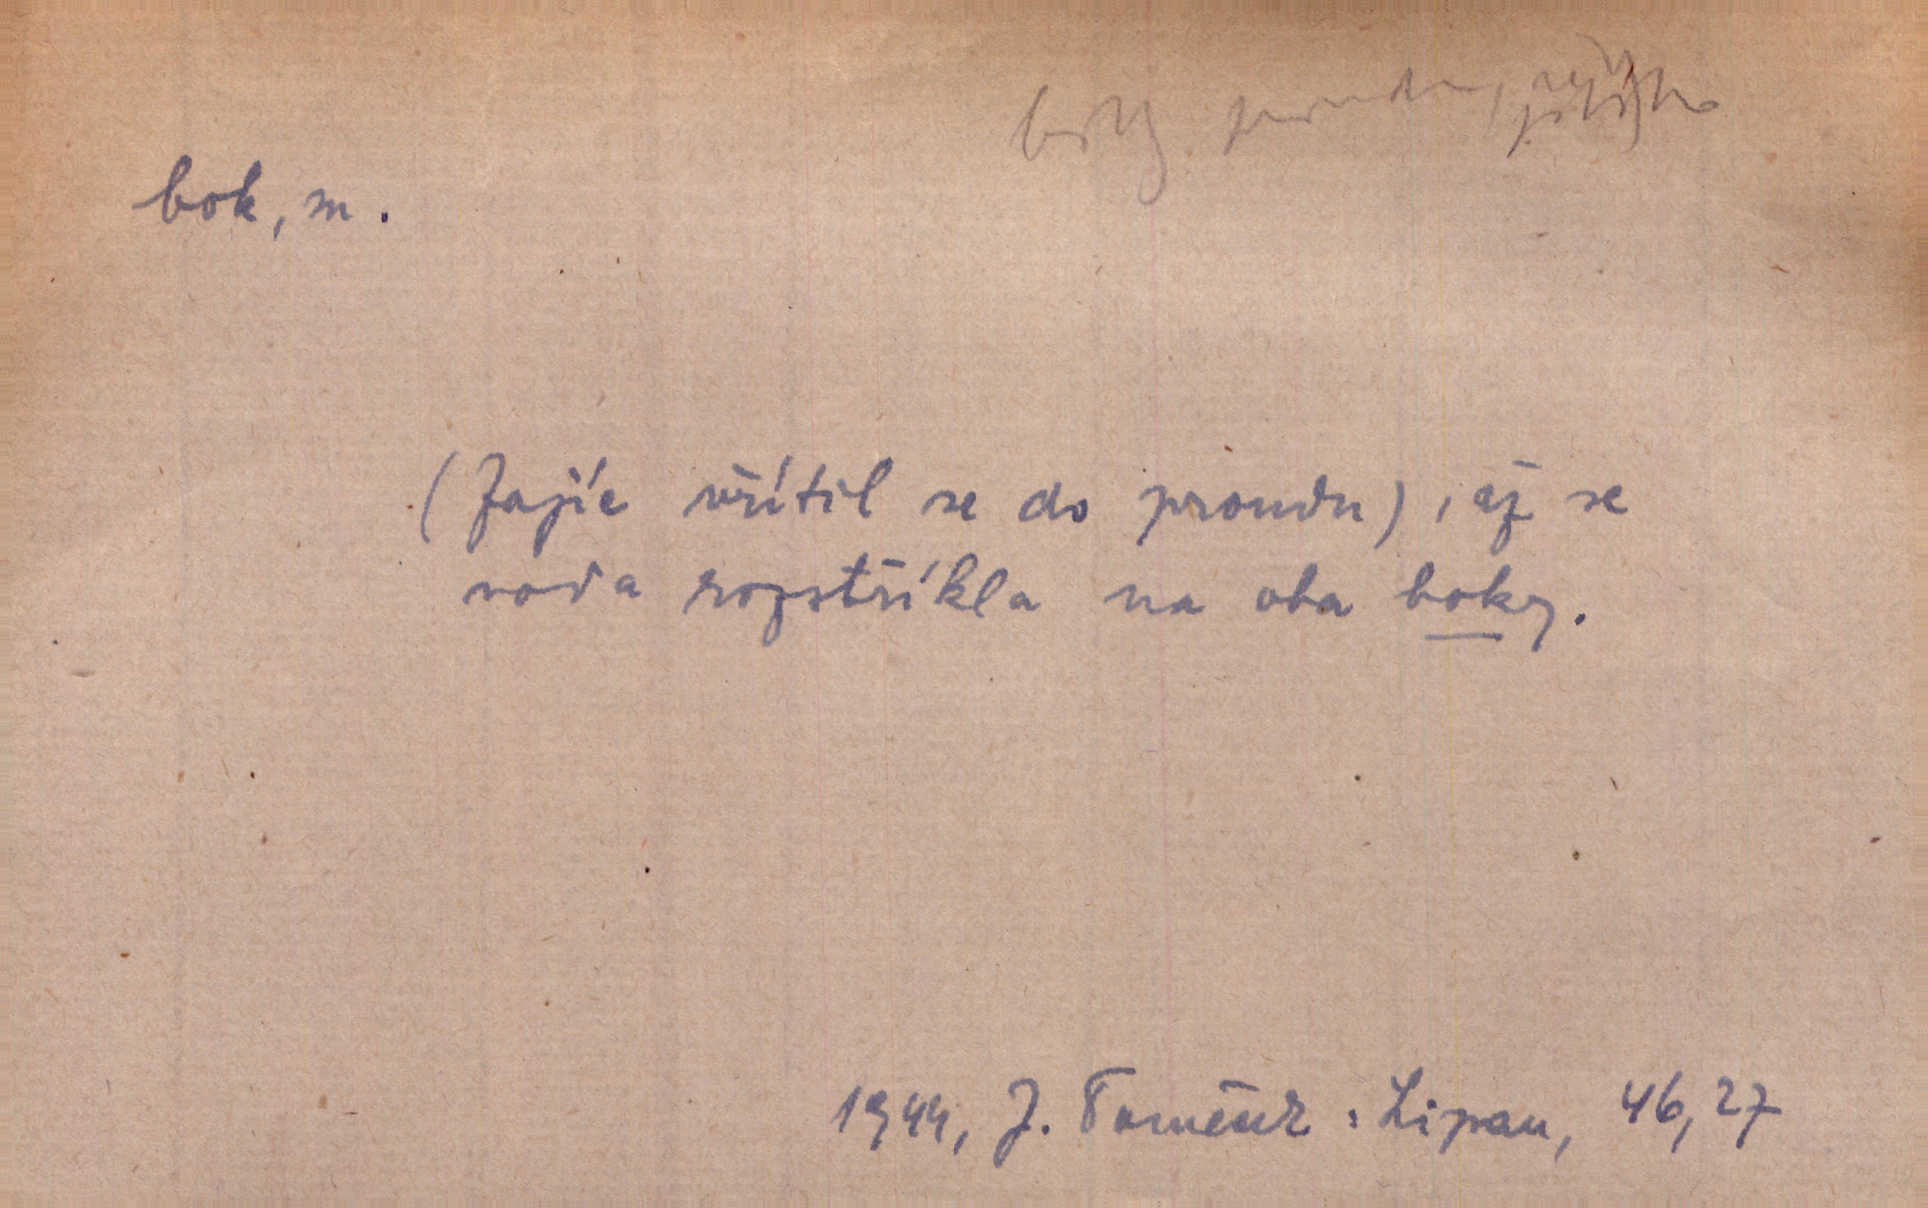 boky proudu,
bok, m.
(Zajíc vřítil se do proudu), až se
voda rozstříkla na oba boky.
1944, J. Tomeček: Lipan, 46, 27